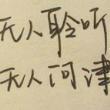 无人聆听
无人问津